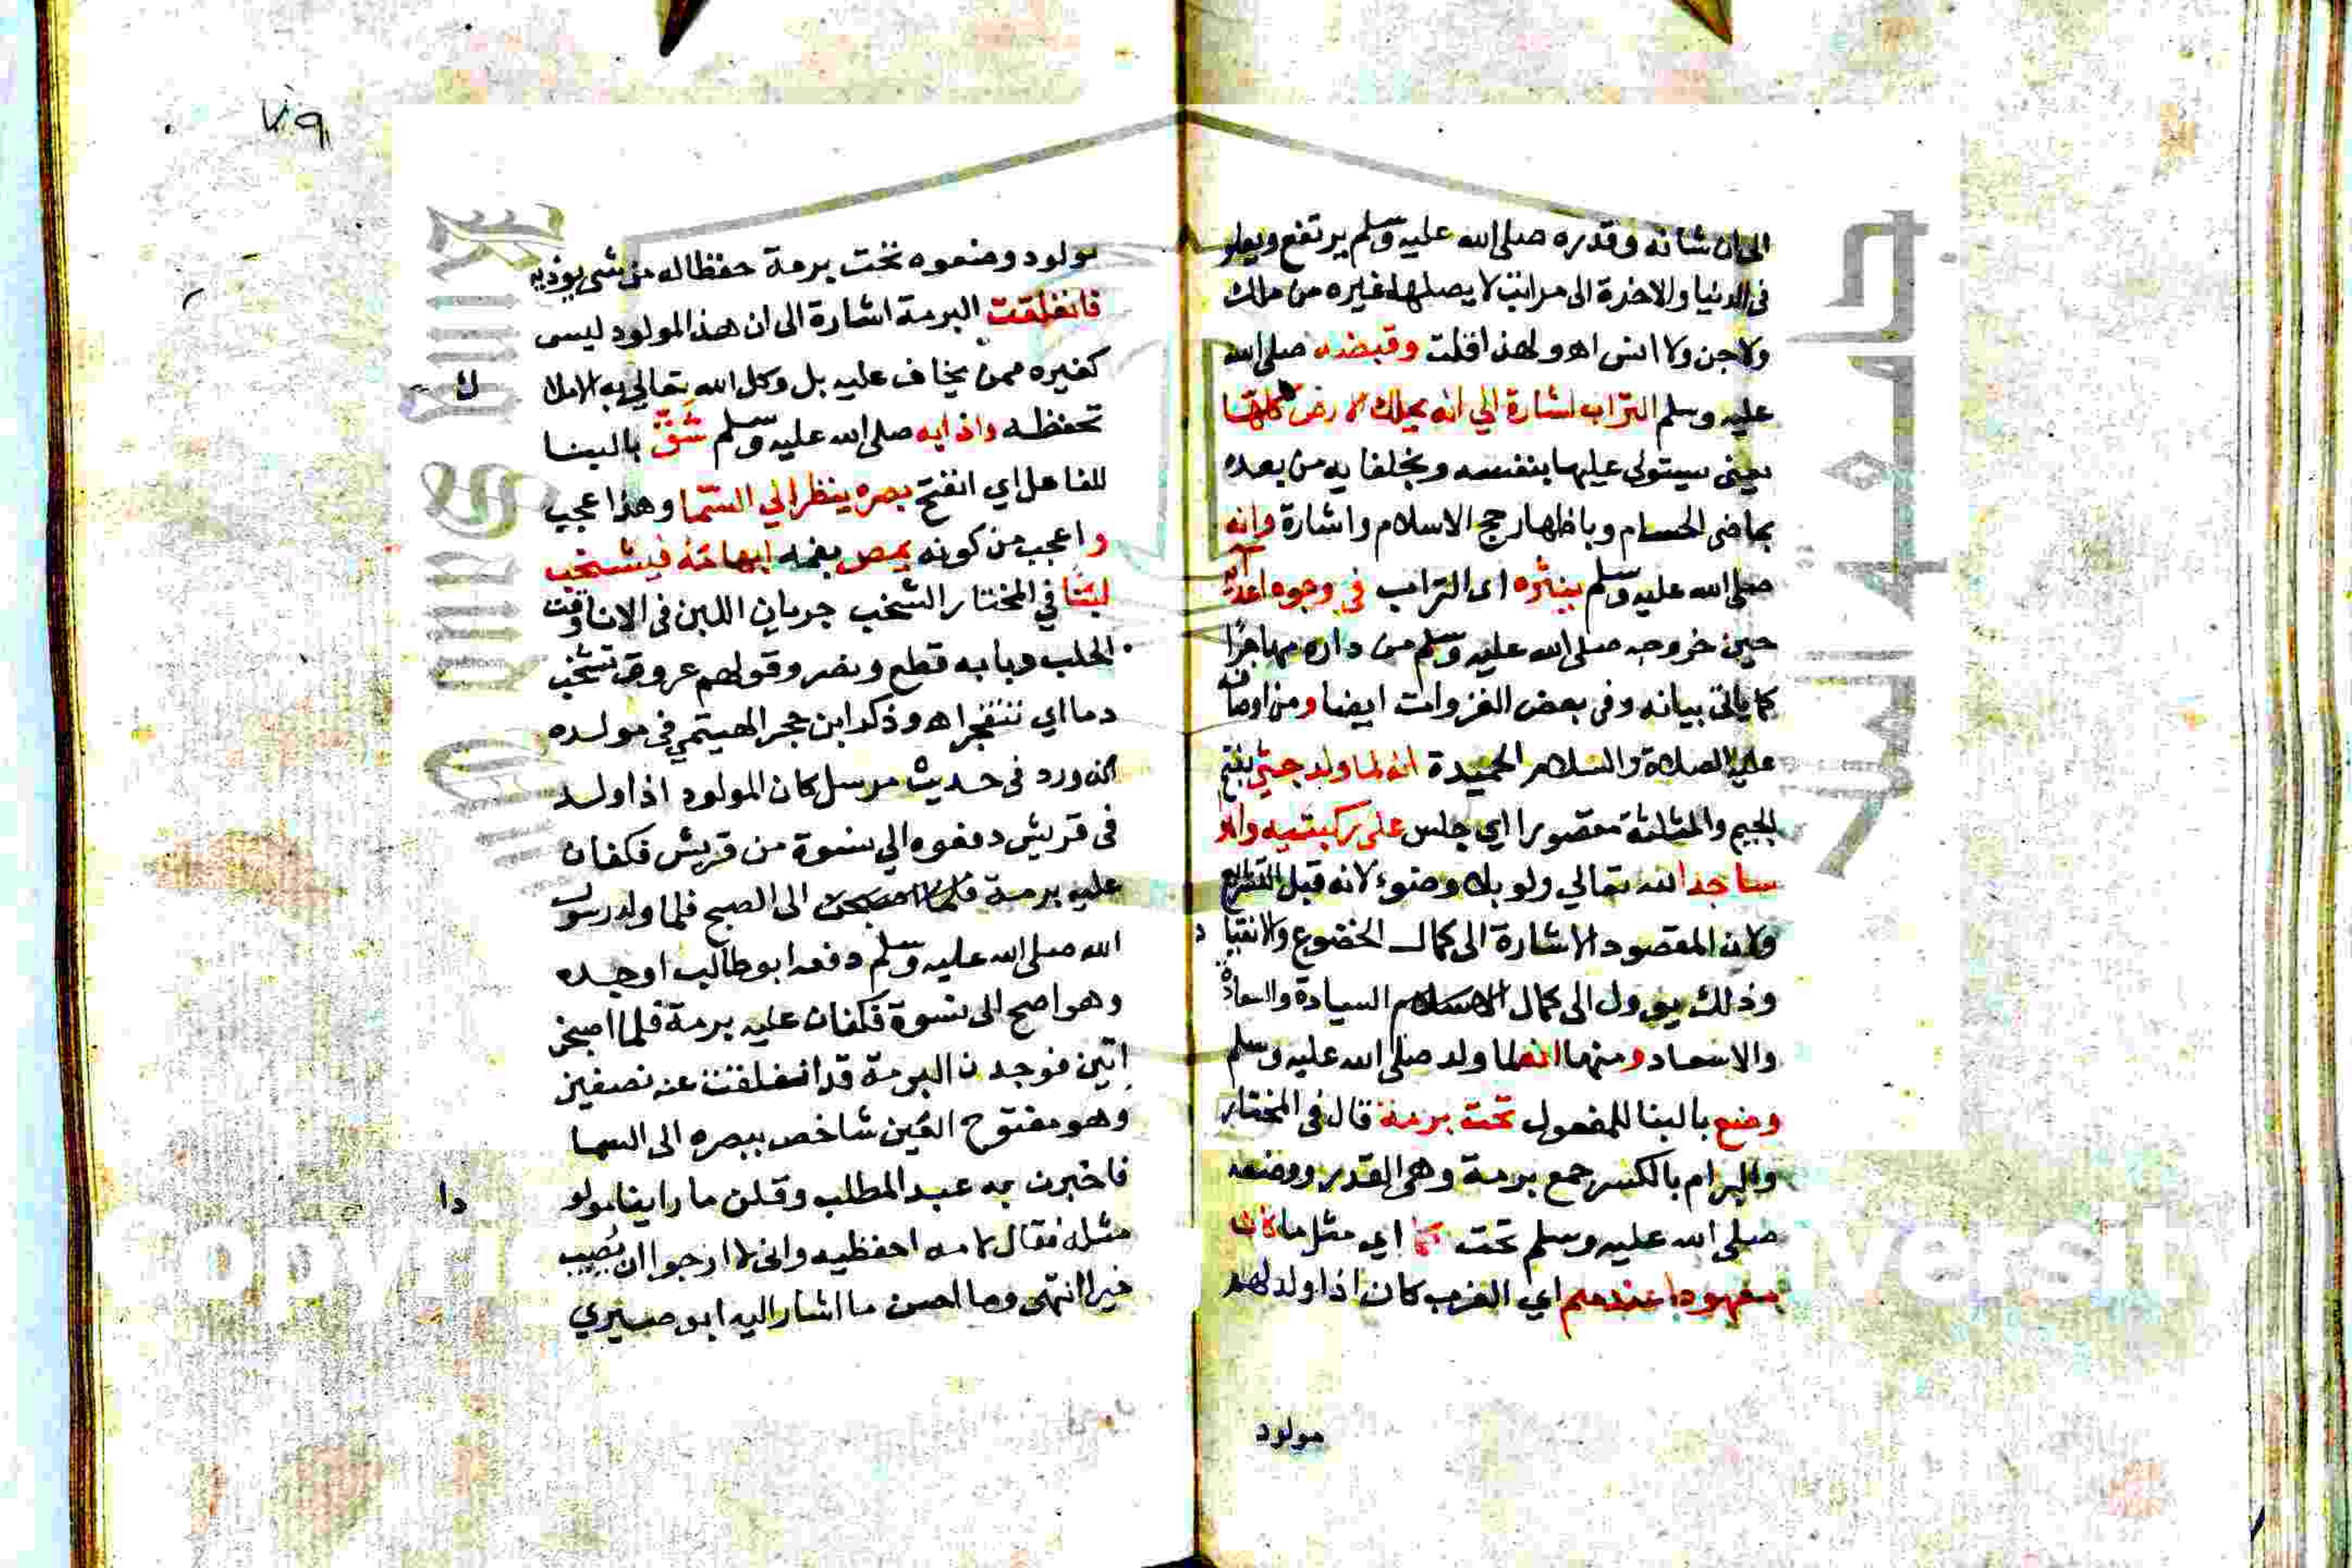 الى ان شانه وقدره صلى الله عليه وسلم يرتفع ويعلو
فى الدنيا والاخرة الى مراتب لا يصلها غيره من ملك
ولا جن ولا انس اه ولهذا قلت وقبضه صلى الله
عليه وسلم التراب اشارة الي انه يملك الارض كلها
يعنى سيتولى عليها بنفسه وبخلفايه من بعده
بماضى الحسام وباظهار حجج الاسلام واشارة وانه
صلى الله عليه وسلم ينثره اى التراب في وجوه اعدائه
حين خروجه صلى الله عليه وسلم من داره مهاجرًا
كما ياتى بيانه وفى بعض الغزوات ايضا ومن اوصافه
عليه الصلاة والسلام الحميدة انه لما ولد جثي بفتح
الجيم والمثلثة مقصورا اي جلس على ركبتيه وانه
ساجدا لله تعالي ولو بلا وضوء لانه قبل التشريع
ولان المقصود الاشارة الى كمال الخضوع والانقيا د
وذلك يوول الى كمال السيادة والسعادة
والاسعاد ومنها انه لما ولد صلى الله عليه وسلم
وضع بالبنا للمفعول تحت برمة قال فى المختار
والبرام بالكسر جمع برمة وهى القدر ووضعه
صلى الله عليه وسلم تحت كما اي مثل ما كان
معهودا عندهم اي العرب كان اذا ولد لهم
مولود
٧٩
مولود وضعوه تحت برمة حفظا له من شى يوذيه
فانفلقت البرمة اشارة الى ان هذا المولود ليس
كغيره ممن يخاف عليه بل وكل الله تعالي به الاملا ك
تحفظه واذا به صلى الله عليه وسلم شق بالبنا
للفاعل اي انفتح بصره ينظر الي السما وهذا عجيب
واعجب من كونه يمص بفمه ابهامه فيشخب
لبنا في المختار الشخب جريان اللبن فى الانا وقت
الحلب وبابه قطع ونصر وقولهم عروقه تشخب
دما اي تنفجر اه وذكر ابن حجر الهيتمي فى مولده
انه ورد فى حديث مرسل كان المولود اذا ولد
فى قريش دفعوه الي نسوة من قريش فكفان
عليه برمة الى الصبح فلما ولد رسول
الله صلى الله عليه وسلم دفعه ابو طالب او جده
وهو اصح الى نسوة فكفان عليه برمة فلما اصبحن
اتين فوجدن البرمة قد انفلقت عنه نصفين
وهو مفتوح العين شاخص ببصره الى السما
فاخبرن به عبد المطلب وقلن ما راينا مولو دا
مثله فقال لامه احفظيه وانى لا ارجوا ان يُصيب
خيرا انتهى وما احسن ما اشار اليه ابو صيري